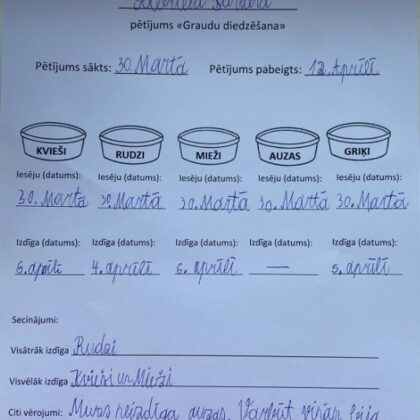 pētījums «Graudu diedzēšana»
Pētījums sākts: 30 Martā Pētījums pabeigts: 12 Aprīlī
KVIEŠI RUDZI MIEŽI AUZAS GRIĶI
Iesēju (datums): Iesēju (datums): Iesēju (datums): Iesēju (datums): Iesēju (datums):
30. Martā 30. Martā 30. Martā 30. Martā 30. Martā
Izdīga (datums): Izdīga (datums): Izdīga (datums): Izdīga (datums): Izdīga (datums):
6. aprīlī 4. aprīlī 6. aprīlī — 5. aprīlī
Secinājumi:
Visātrāk izdīga Rudzi
Visvēlāk izdīga Kvieši un Mieži
Citi vērojumi: Mums neizdīga auzas. Varbūt viņām